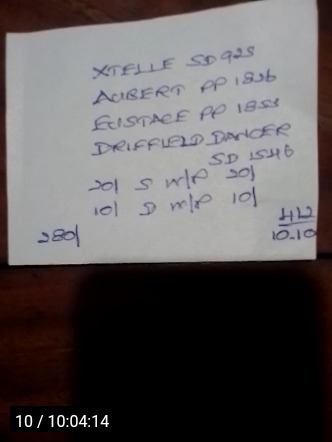 XTELLE SD 925
AUBERT PP 1826
EUSTACE PP 1853
DRIFFIELD DANCER
SD 1546
20/ S W/P 20/
10/ D W/P 10/
280/
412
10-10
10 / 10:04:14